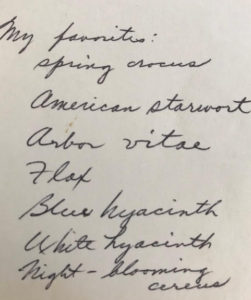 My favorites:
spring crocus
American starwort
Arbor vitae
Flax
Blue hyacinth
White hyacinth
Night-blooming
cereus